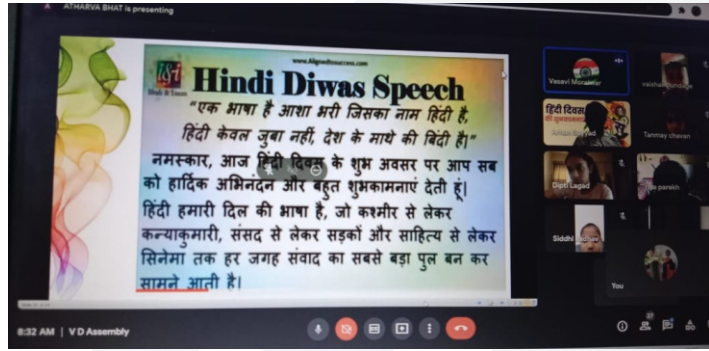 ATHARVA BHAT is presenting
www.Alignedtosuccess.com
Hindi Diwas Speech
"एक भाषा है आशा भरी जिसका नाम हिंदी है,
हिंदी केवल जुबा नहीं, देश के माथे की बिंदी है।"
नमस्कार, आज हिंदी दिवस के शुभ अवसर पर आप सब
को हार्दिक अभिनंदन और बहुत शुभकामनाएं देती हूं।
हिंदी हमारी दिल की भाषा है, जो कश्मीर से लेकर
कन्याकुमारी, संसद से लेकर सड़कों और साहित्य से लेकर
सिनेमा तक हर जगह संवाद का सबसे बड़ा पुल बन कर
सामने आती है।
Vasavi
हिंदी दिवस
की
Tanmay chavan
Dipti Lagad
parekh
Siddhi
You
8:32 AM | V D Assembly